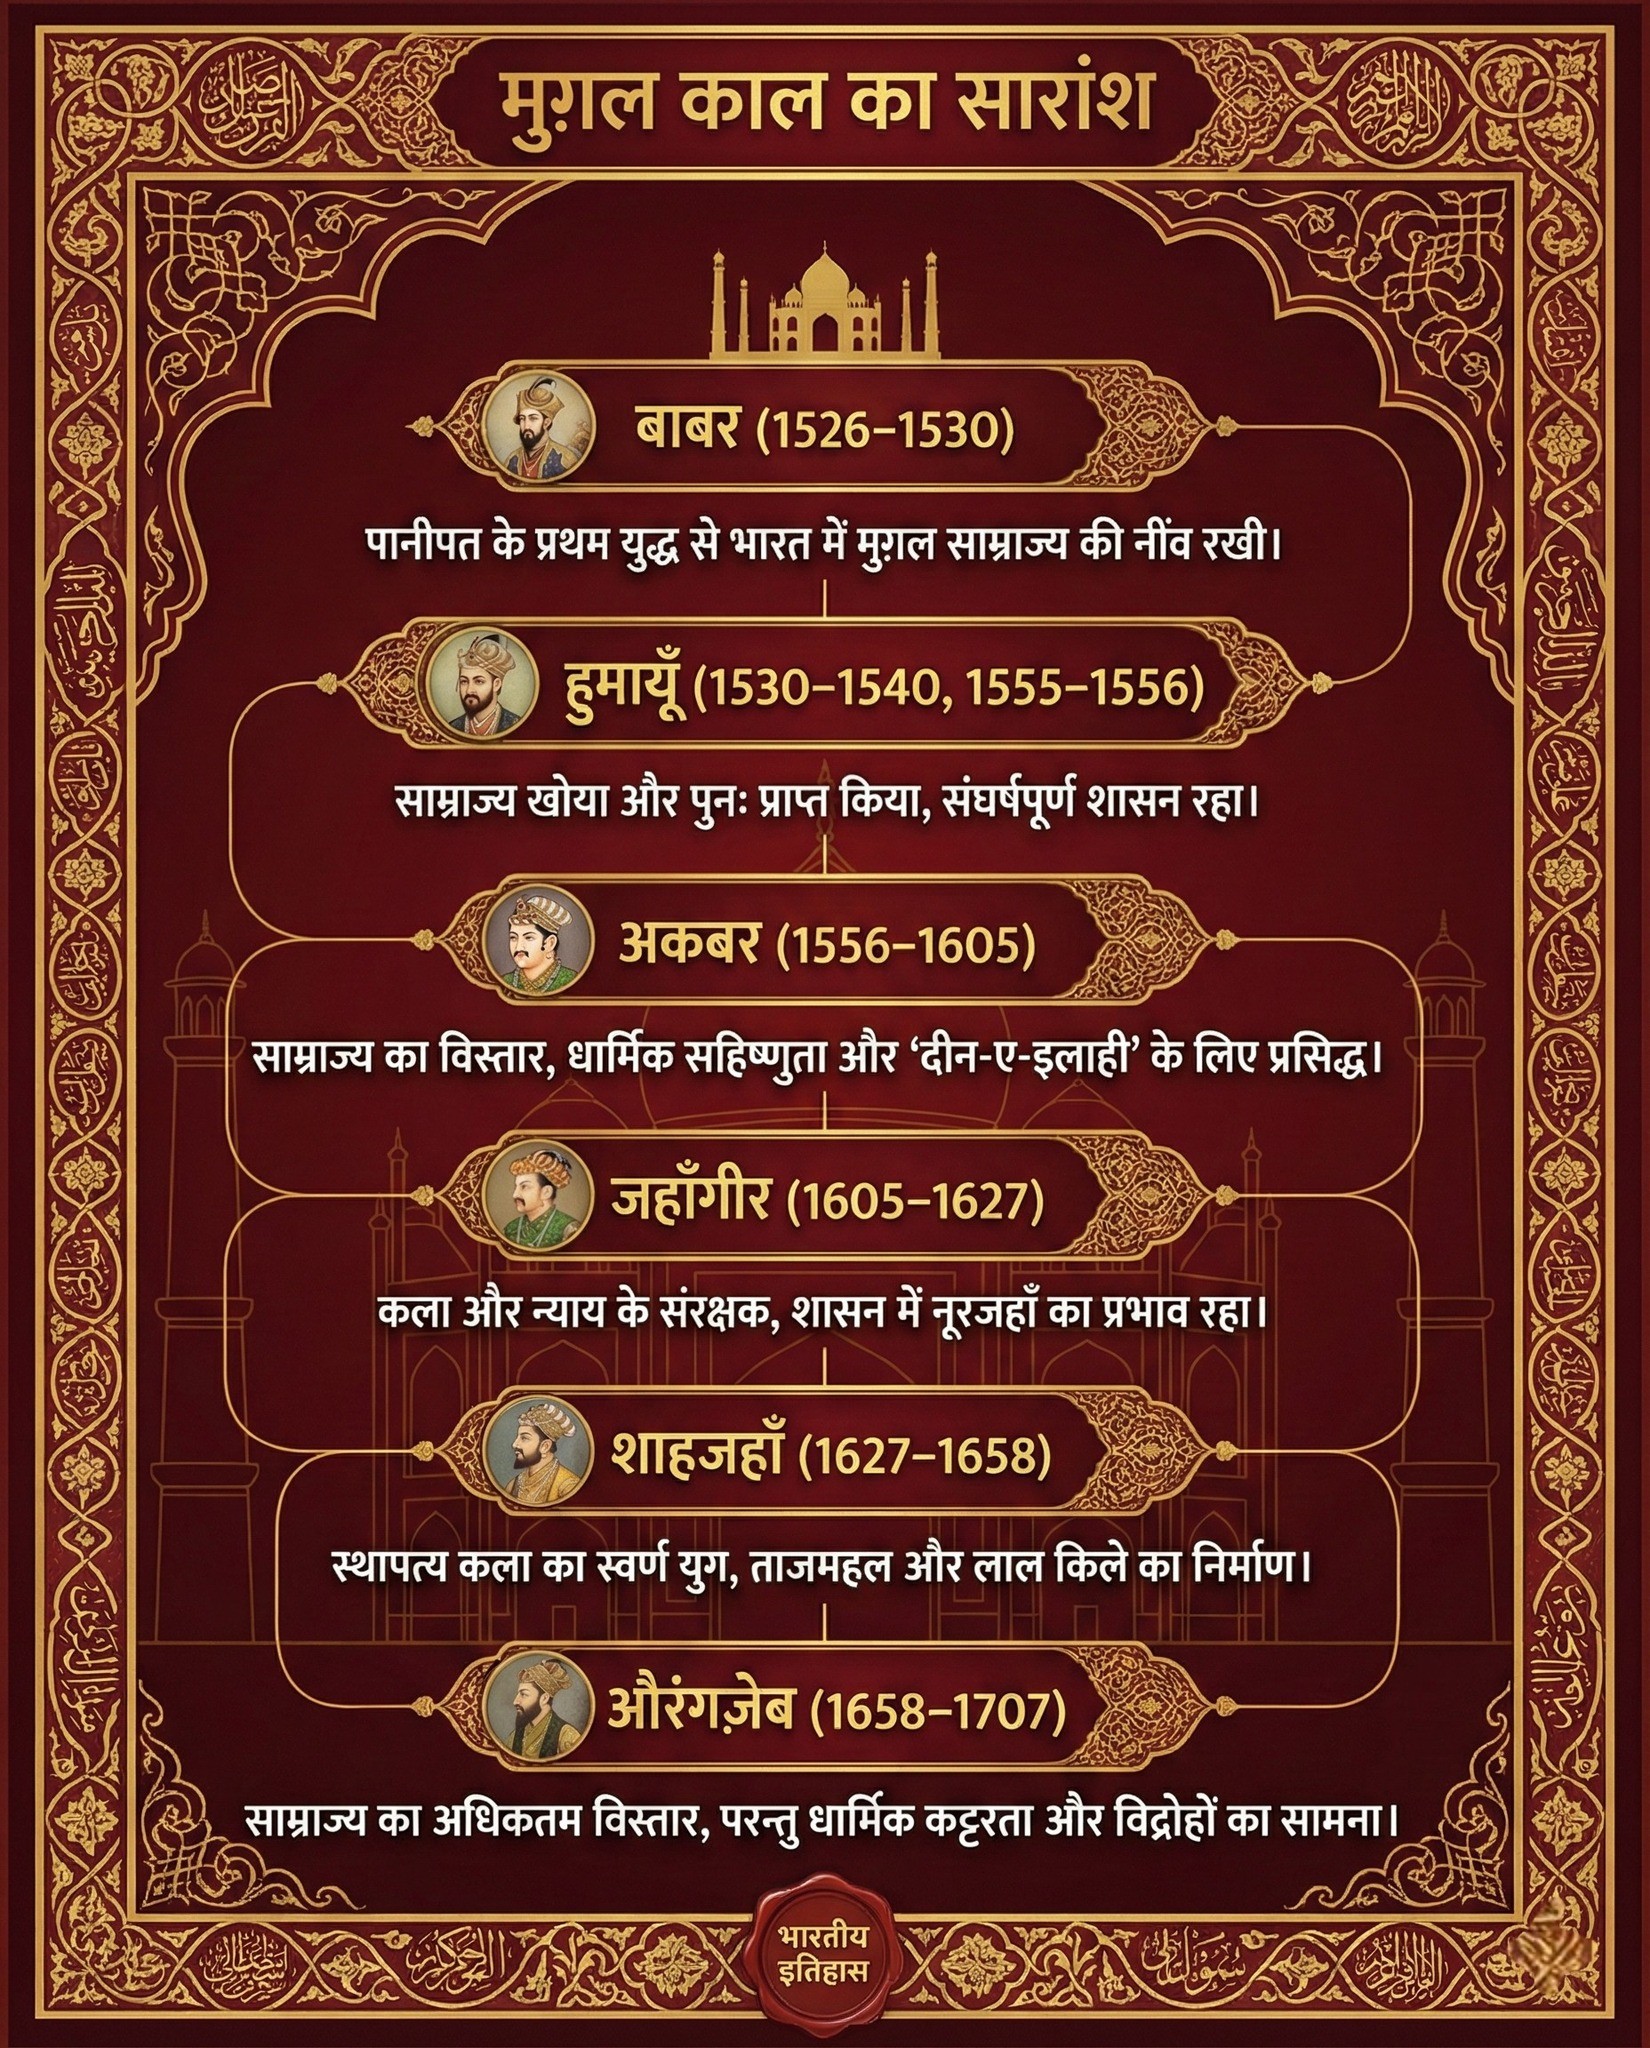 मुग़ल काल का सारांश
बाबर (1526–1530)
पानीपत के प्रथम युद्ध से भारत में मुग़ल साम्राज्य की नींव रखी।
हुमायूँ (1530–1540, 1555–1556)
साम्राज्य खोया और पुनः प्राप्त किया, संघर्षपूर्ण शासन रहा।
अकबर (1556–1605)
साम्राज्य का विस्तार, धार्मिक सहिष्णुता और ‘दीन-ए-इलाही’ के लिए प्रसिद्ध।
जहाँगीर (1605–1627)
कला और न्याय के संरक्षक, शासन में नूरजहाँ का प्रभाव रहा।
शाहजहाँ (1627–1658)
स्थापत्य कला का स्वर्ण युग, ताजमहल और लाल किले का निर्माण।
औरंगज़ेब (1658–1707)
साम्राज्य का अधिकतम विस्तार, परन्तु धार्मिक कट्टरता और विद्रोहों का सामना।
भारतीय
इतिहास